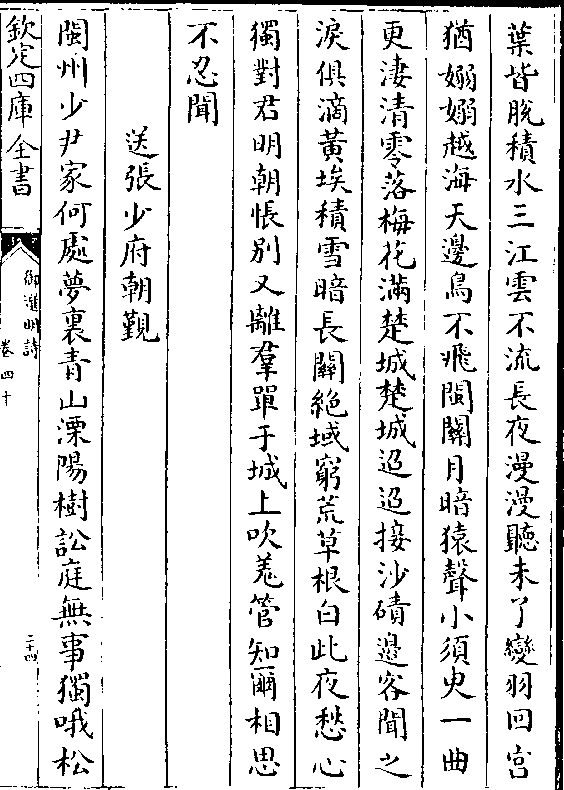 葉皆脫積水三江雲不流長夜漫漫聽未了變羽回宮
猶嫋嫋越海天邊鳥不飛閩關月暗猿聲小須臾一曲
更淒清零落梅花滿楚城楚城迢迢接沙磧邊客聞之
淚俱滴黃埃積雪暗長關絶域窮荒草根白此夜愁心
獨對君明朝悵别又離羣單于城上吹羗管知爾相思
不忍聞
送張少府朝覲
閩州少尹家何處夢裏青山溧陽樹訟庭無事獨哦松
欽定四庫全書
御選明詩
卷四十
二十四